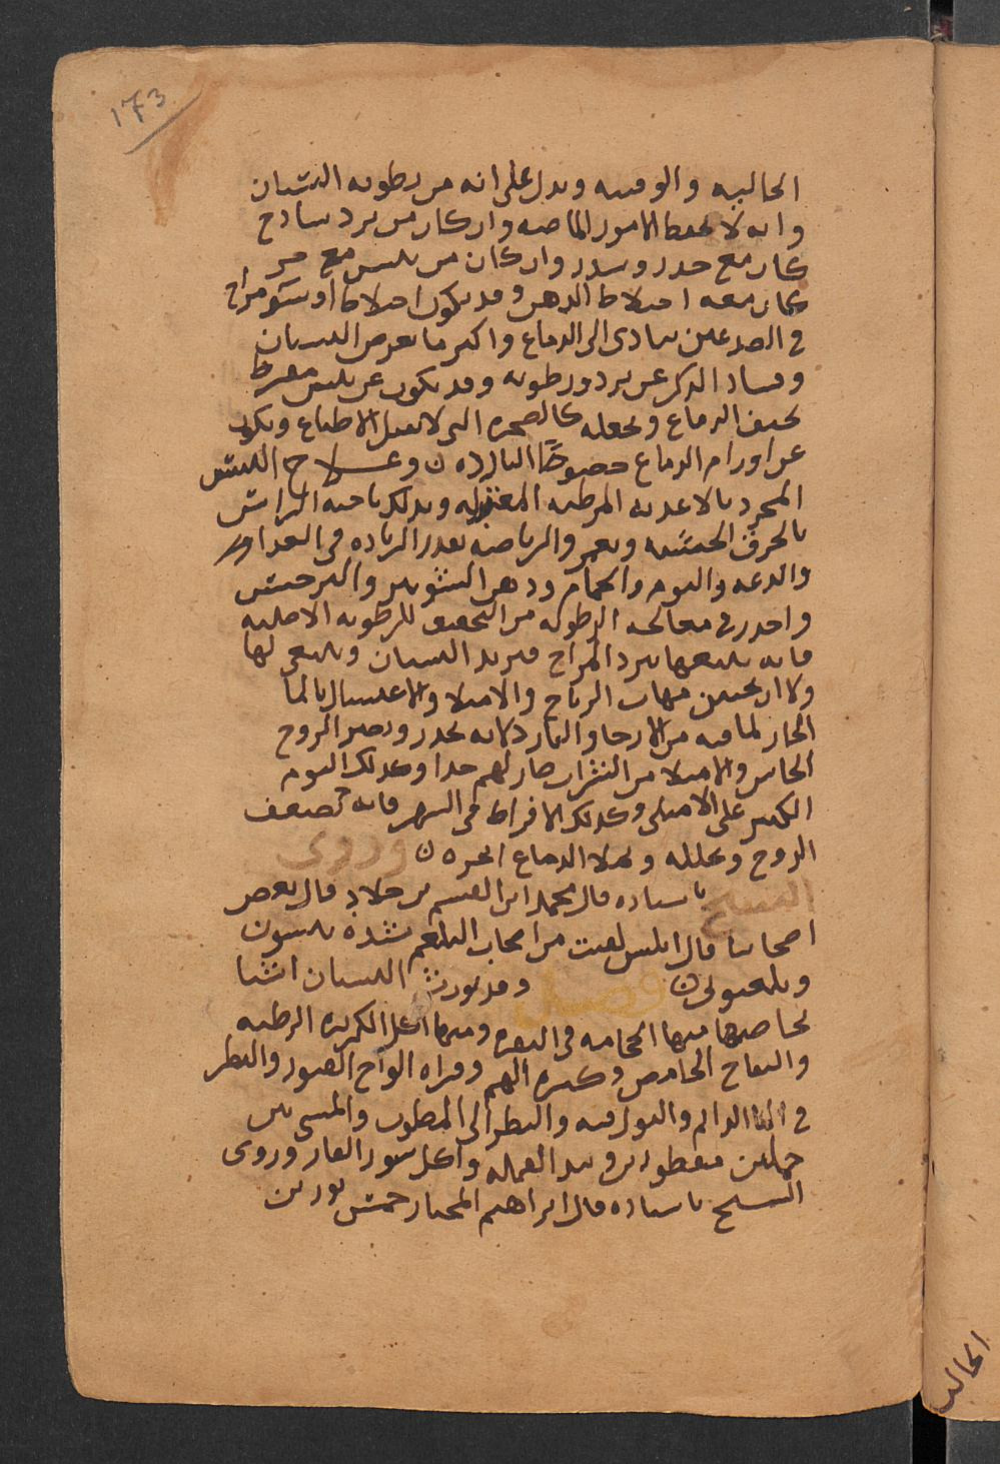 173
الحاليه والوقتيه ويدل على انه من رطوبه النسيان
وانه لا يحفظ الامور الماضيه وان كان من برد ساذج
كان مع خدر وسدر وان كان من يبس مع حر
كان معه اختلاط الذهن وقد يكون اختلاط او سو مزاج
في الصدغين يتادى الى الدماغ واكثر ما يعرض النسيان
وفساد الذكر عن برد ورطوبه وقد يكون عن يبس مفرط
يجفف الدماغ ويجعله كالصخره التي لا تقبل الانطباع ويكون
عن اورام الدماغ خصوصًا البارده ن وعلاج اليبس
المجرد بالاغذيه المرطبه المعتدله وبدلك ناحيه الراس
بالخرق الخشنه وبغمر والرياضه بقدر الزياده في الغدا
والدعه والنوم والحمام ودهن
واحذر في معالجه الرطوبه من التجفيف للرطوبه الاصليه
فانه يتبعها برد المزاج فيزيد النسيان وينبغي لها
ولا ان يجتنبن مهاب الرياح والامتلا والاغتسال بالما
الحار لما فيه من الارخا والبارد لانه يخدر ويضر الروح
الحاس والامتلا من الشراب ضار لهم جدا وكذلك النوم
الكثير على الامتلى وكذلك الافراط في السهر فانه يضعف
الروح ويحلله ويملا الدماغ ابخره ن وروى
الشيخ باسناده قال محمد ابن القسم بن خلاد قال بعض
اصحابنا قال ابليس لقيت من اصحاب البلغم شده ينسون
ويلعنوني ن فصل وقد يورث النسيان اشيا
بخاصيتها منها الحجامه في النقره ومنها اكل الكزبره الرطبه
والتفاح الحامض وكثره الهم وقراه الواح القبور والنظر
في الما الدايم والبول فيه والنظر الى المصلوب والمشي بين
جملين مقطورين ونبذ القمله واكل سور الفار وروى
الشيخ باسناده قال ابراهيم المختار خمس يورثن